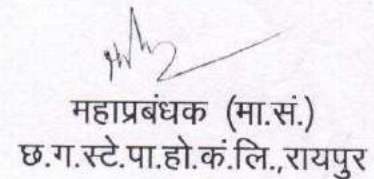 महाप्रबंधक (मा.सं.)
छ.ग.स्टे.पा.हो.कं.लि.,रायपुर